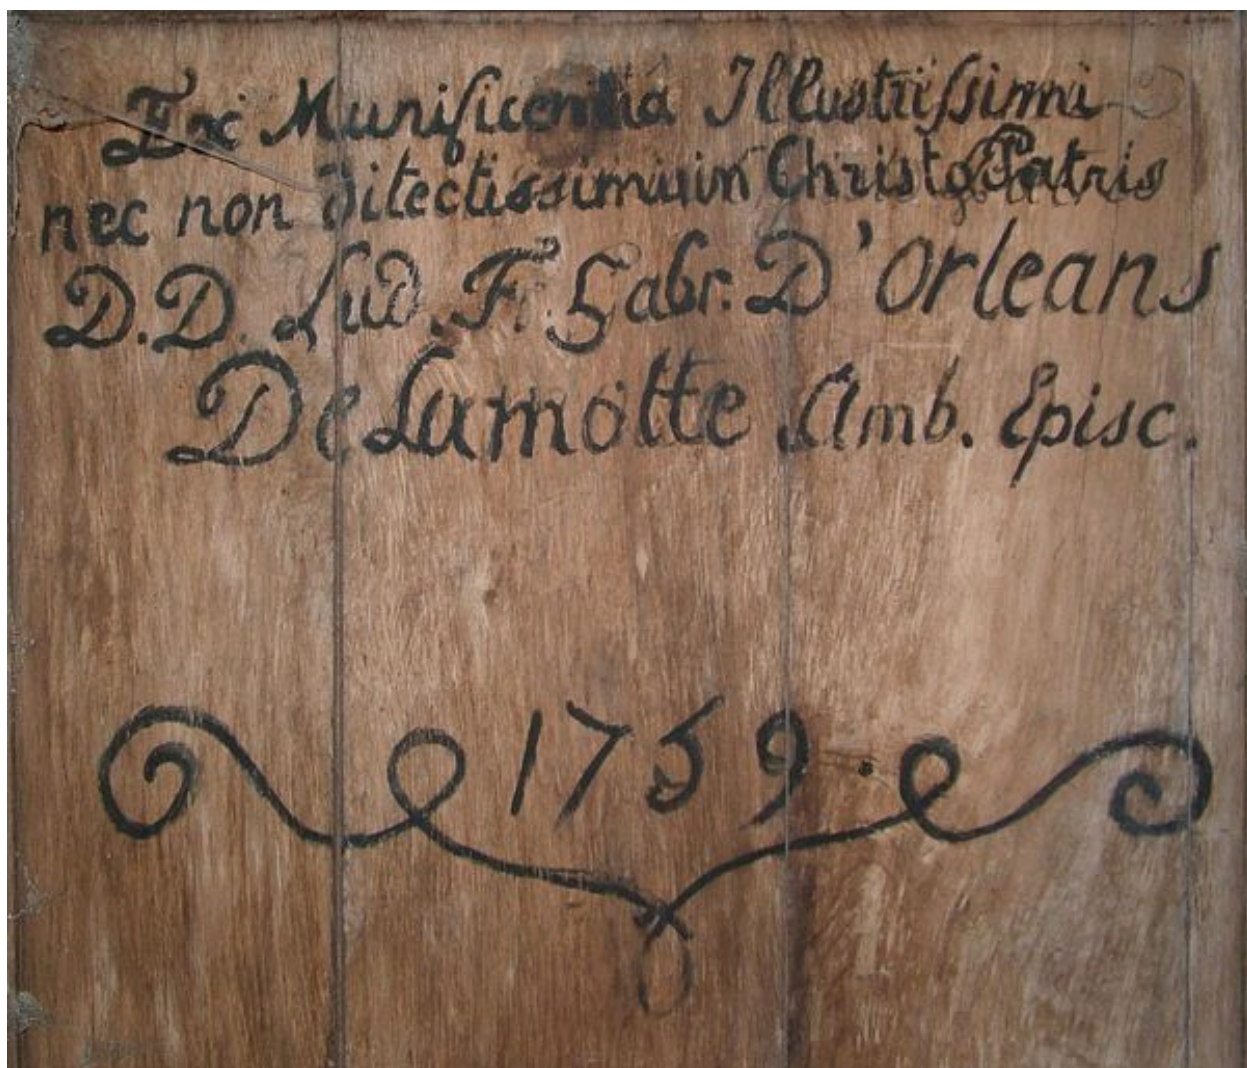 Ex Munificentia Illustrissimi
nec non ditectissimi in Christo Patris
D.D. Lud. Fr. Gabr. D'Orleans
De Lamotte Amb. Episc.
1759